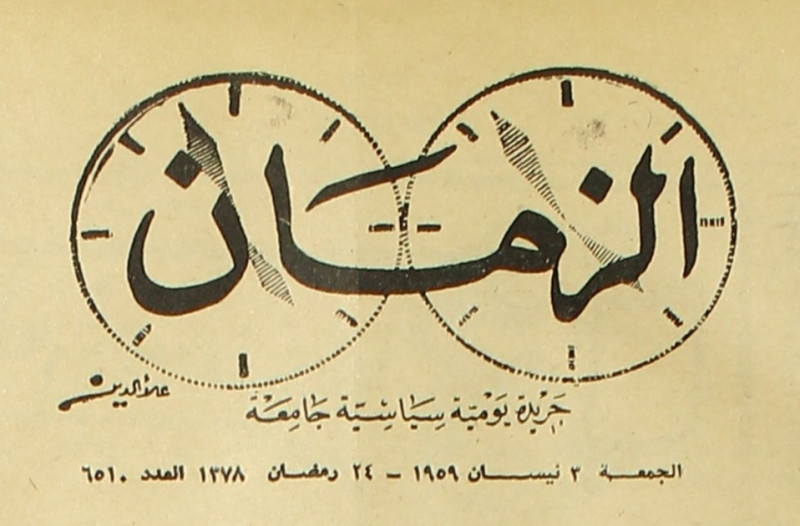 الزمان
علاء الدين
جَريدة يَوْميّة سِيَاسِيّة جَامِعَة
الجمعــة ٣ نيســـان ١٩٥٩ – ٢٤ رمضــان ١٣٧٨ العدد ٦٥١٠